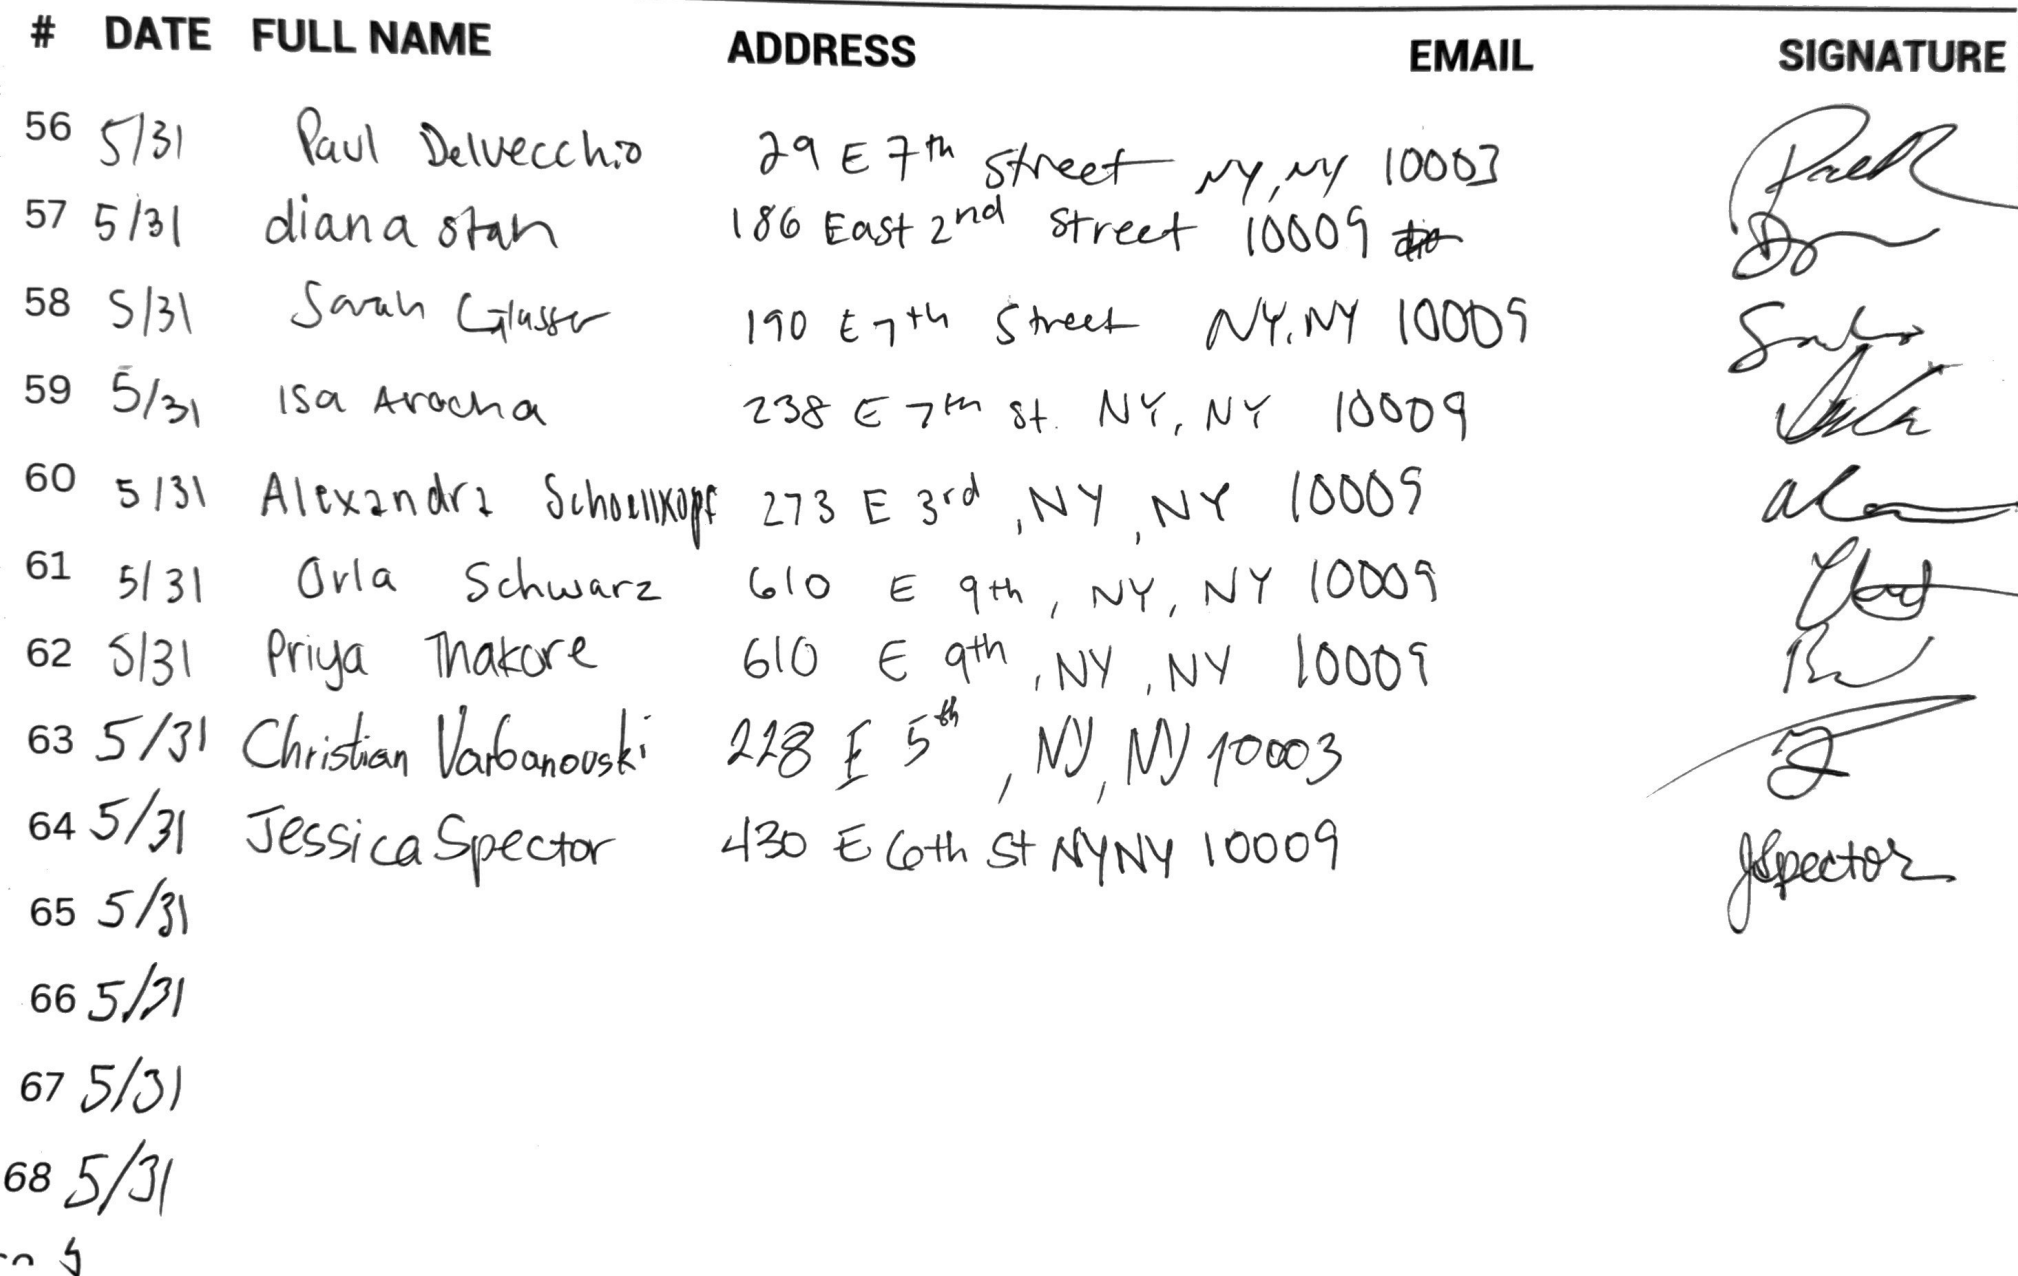 # DATE FULL NAME ADDRESS EMAIL SIGNATURE
56 5/31 Paul Delvecchio 29 E 7th Street NY, NY 10003
57 5/31 diana stan 186 East 2nd Street 10009
58 5/31 Sarah Glasser 190 E 7th Street NY, NY 10009
59 5/31 Isa Arocha 238 E 7th St. NY, NY 10009
60 5/31 Alexandra Schoellkopf 273 E 3rd, NY, NY 10009
61 5/31 Orla Schwarz 610 E 9th, NY, NY 10009
62 5/31 Priya Thakore 610 E 9th, NY, NY 10009
63 5/31 Christian Varbanovski 228 E 5th, NY, NY 10003
64 5/31 Jessica Spector 430 E 6th St NY NY 10009 JSpector
65 5/31
66 5/31
67 5/31
68 5/31